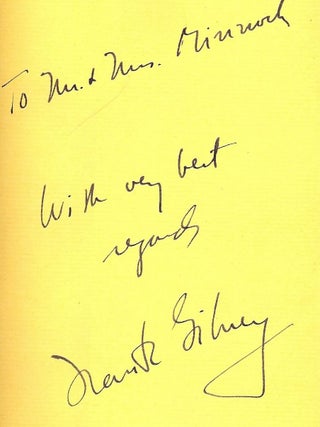 To Mr. & Mrs. Minnock
With very best
regards
Frank Gibney